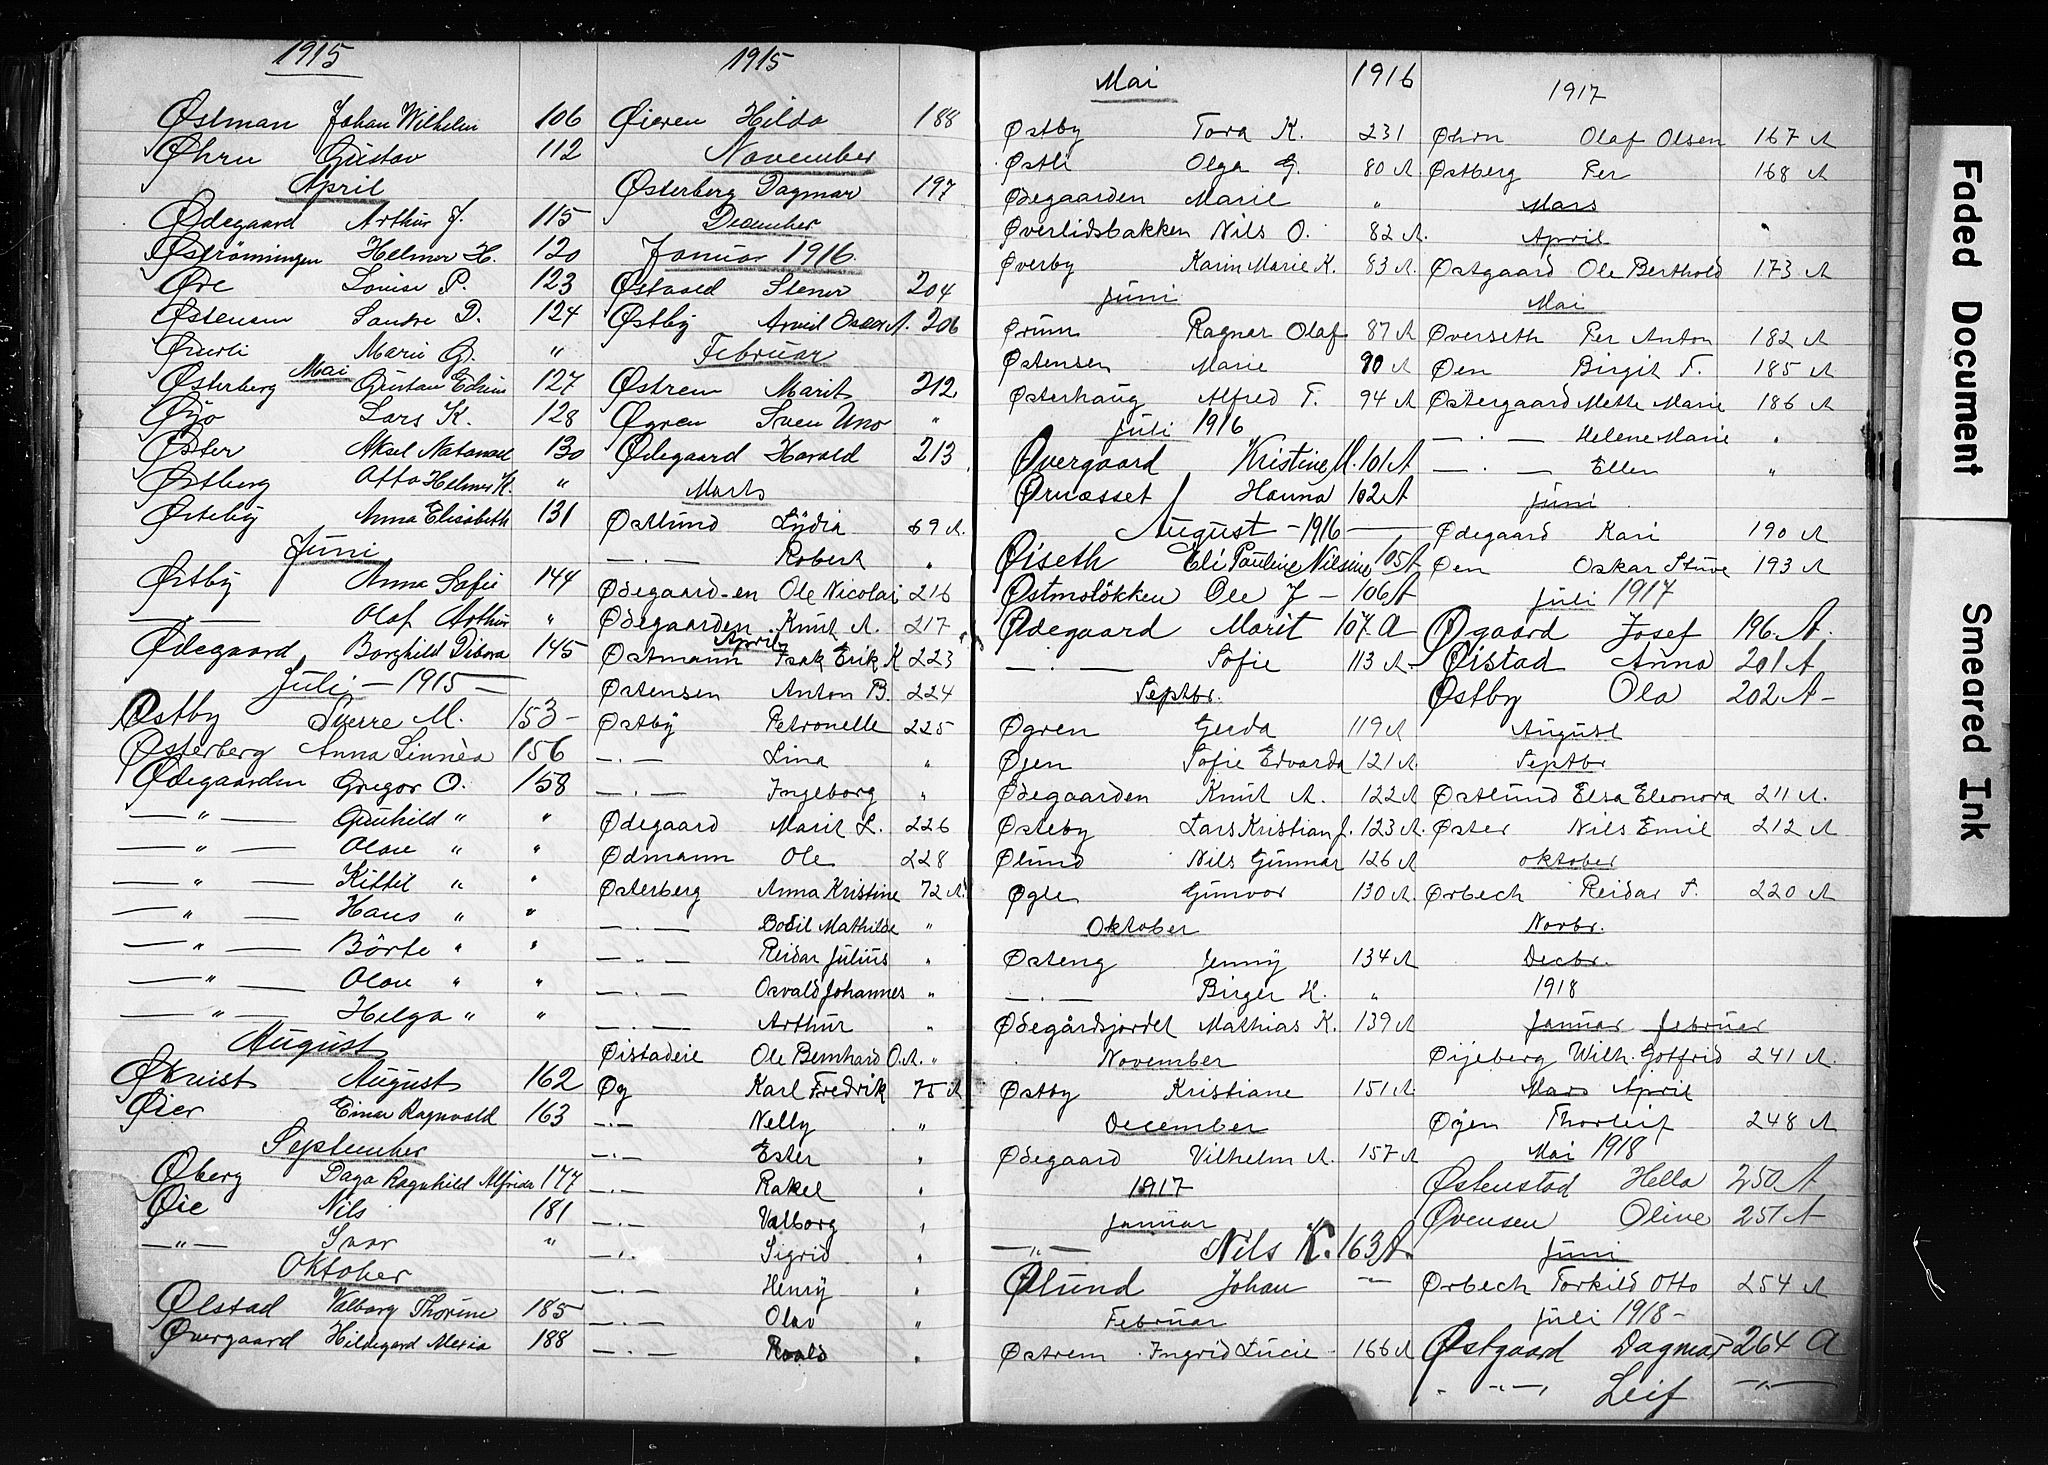 1915
Østman Johan Wilhelm 106
Øhrn Gustav 112
April
Ødegaard Arthur J. 115
Østrømningen Helmer H. 120
Øre Louise P. 123
Østensen Sandre D. 124
Marie G. "
Mai
Østerberg Gustav Edvin 127
Øyo Lars K. 128
Øster Aksel Natanael 130
Østberg Otto Helmer K. "
Østeby Anna Elisabeth 131
Juni
Østby Anna Sofie 144
— " — Olaf Arthur "
Ødegaard Borghild Debora 145
Juli – 1915 –
Østby Sverre M. 153 –
Østerberg Anna Linnèa 156
Ødegaarden Gregor O. 158
— " — Gunhild " "
— " — Olav " "
— " — Kittil " "
— " — Hans " "
— " — Börte " "
— " — Olav " "
— " — Helga " "
August
Økvist August 162
Øier Einar Ragnvald 163
September
Øberg Daga Ragnhild Alfrida 177
Øie Nils 181
— " — Ivar "
Oktober
Ølstad Valborg Thorine 185
Øvergaard Hildegard Alexia 188
1915
Øieren Hilda 188
November
Østerberg Dagmar 197
December
Januar 1916.
Østvold Stener 204
Østby Arvid Oscar A. 206
Februar
Østrem Marit 212
Øgren Sven Uno "
Ødegaard Harald 213
Marts
Østlund Lydia 69 A.
— . — Robert "
Ødegaard-en Ole Nicolai 216
Ødegaarden Knut A. 217
April
Østmann Isak Erik K 223
Østensen Anton B. 224
Østby Petronelle 225
— . — Lina "
— . — Ingeborg "
Ødegaard Marit L. 226
Ødmann Ole 228
Østerberg Anna Kristine 72 A.
— . — Bodil Mathilde "
— . — Reidar Julius "
— . — Osvald Johannes "
— . — Arthur "
Øistadeie Ole Bernhard O.A. "
Øg Karl Fredrik 75 A
— . — Nelly "
— . — Ester "
— . — Rakel "
— . — Valborg "
— . — Sigrid "
— . — Henry "
— . — Olav "
— . — Roald "
Mai 1916
Østby Tora K. 231
Østli Olga G. 80 A
Ødegaarden Marie "
Øverlidsbakken Nils O. 82 A.
Øverby Karin Marie K. 83 A.
Juni
Ørum Ragnar Olaf 87 A
Østensen Marie 90 A
Østerhaug Alfred T. 94 A
Juli 1916
Øvergaard Kristine M. 101 A
Ørnæsset Hanna 102 A
August – 1916 —
Øiseth Eli Pauline Nilsine 105 A
Østmsløkken Ole J – 106 A
Ødegaard Marit 107. A
— . — Sofie 113 A –
Septbr.
Øgren Gerda 119 A
Øien Sofie Edvarda 121 A
Ødegaarden Knut A. 122 A
Østeby Lars Kristian J. 123 A.
Ølund Nils Gunnar 126 A
Øgle Gunvor 130 A.
Oktober
Østeng Jenny 134 A
— . — Birger H. "
Ødegårdsjordet Mathias K. 139 A
November
Østby Kristiane 151 A
December
Ødegaard Vilhelm A. 157 A
1917
Januar
— " — Nils K. 163 A
Ølund Johan — " —
Februar
Østrem Ingrid Lucie 166 A
1917
Øhrn Olaf Olsen 167 A
Østberg Per 168 A
Mars
April
Østgaard Ole Berthold 173 A
Mai
Øverseth Per Anton 182 A
Øen Birgit T. 185 A
Østergaard Mette Marie 186 A
— . — Helene Marie "
— . — Ellen "
Juni
Ødegaard Kari 190 A
Øen Oskar Stuve 193 A
Juli 1917
Øgaard Josef 196. A.
Øistad Anna 201 A
Østby Ola 202 A –
August
Septbr
Østlund Elsa Eleonora 211 A.
Øster Nils Emil 212 A
Oktober
Ørbech Reidar T. 220 A
Novbr.
Decbr.
1918
Januar Februar
Øijeberg Wilh. Gotfrid 241 A.
Mars April
Øyen Thorleif 248 A
Mai 1918
Østenstad Hella 250 A
Øvensen Olive 251 A
Juni
Ørbech Torkild Otto 254 A
Juli 1918 –
Østgaard Dagmar 264 A
" — " — Leif — " —
Faded Document
Smeared Ink